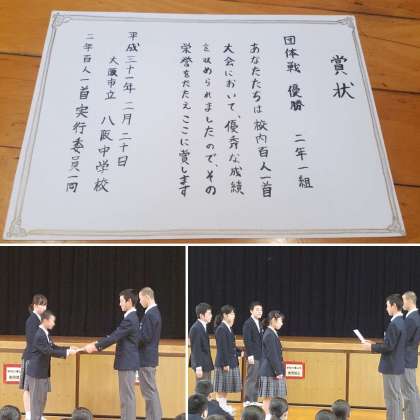 賞状
団体戦 優勝 二年一組
あなたたちは校内百人一首
大会において、優秀な成績
を収められましたので、その
栄誉をたたえここに賞します
平成三十一年 二月二十日
大阪市立 八阪中学校
二年百人一首実行委員一同